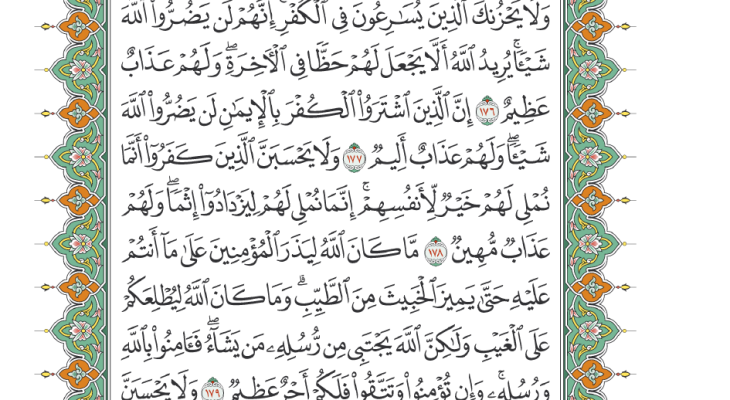 وَلَا يَحْزُنكَ ٱلَّذِينَ يُسَٰرِعُونَ فِي ٱلْكُفْرِ ۚ إِنَّهُمْ لَن يَضُرُّوا۟ ٱللَّهَ
شَيْـًٔا ۗ يُرِيدُ ٱللَّهُ أَلَّا يَجْعَلَ لَهُمْ حَظًّا فِي ٱلْـَٔاخِرَةِ ۖ وَلَهُمْ عَذَابٌ
عَظِيمٌ ١٧٦ إِنَّ ٱلَّذِينَ ٱشْتَرَوُا۟ ٱلْكُفْرَ بِٱلْإِيمَٰنِ لَن يَضُرُّوا۟ ٱللَّهَ
شَيْـًٔا ۖ وَلَهُمْ عَذَابٌ أَلِيمٌ ١٧٧ وَلَا يَحْسَبَنَّ ٱلَّذِينَ كَفَرُوٓا۟ أَنَّمَا
نُمْلِي لَهُمْ خَيْرٌ لِّأَنفُسِهِمْ ۚ إِنَّمَا نُمْلِي لَهُمْ لِيَزْدَادُوٓا۟ إِثْمًا ۖ وَلَهُمْ
عَذَابٌ مُّهِينٌ ١٧٨ مَّا كَانَ ٱللَّهُ لِيَذَرَ ٱلْمُؤْمِنِينَ عَلَىٰ مَآ أَنتُمْ
عَلَيْهِ حَتَّىٰ يَمِيزَ ٱلْخَبِيثَ مِنَ ٱلطَّيِّبِ ۗ وَمَا كَانَ ٱللَّهُ لِيُطْلِعَكُمْ
عَلَى ٱلْغَيْبِ وَلَٰكِنَّ ٱللَّهَ يَجْتَبِي مِن رُّسُلِهِۦ مَن يَشَآءُ ۖ فَـَٔامِنُوا۟ بِٱللَّهِ
وَرُسُلِهِۦ ۚ وَإِن تُؤْمِنُوا۟ وَتَتَّقُوا۟ فَلَكُمْ أَجْرٌ عَظِيمٌ ١٧٩ وَلَا يَحْسَبَنَّ